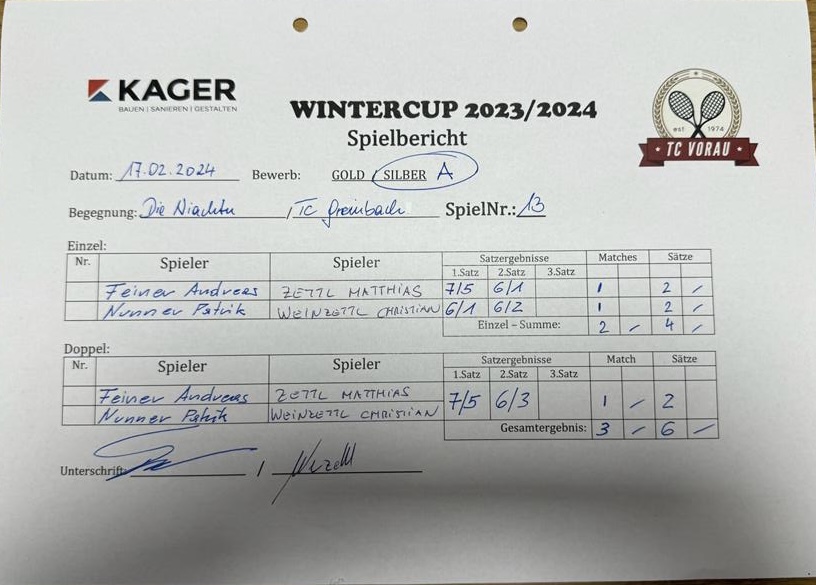 KAGER
BAUEN | SANIEREN | GESTALTEN
WINTERCUP 2023/2024
Spielbericht
est 1974
TC VORAU
Datum: 17.02.2024 Bewerb: GOLD / SILBER A
Begegnung: Die Niachtn / TC Greinbach SpielNr.: 13
Einzel:
Nr. Spieler Spieler Satzergebnisse Matches Sätze
1.Satz 2.Satz 3.Satz
Feiner Andreas ZETTL MATTHIAS 7/5 6/1 1 2 -
Nunner Patrik WEINZETTL CHRISTIAN 6/1 6/2 1 2 -
Einzel – Summe: 2 - 4 -
Doppel:
Nr. Spieler Spieler Satzergebnisse Match Sätze
1.Satz 2.Satz 3.Satz
Feiner Andreas ZETTL MATTHIAS 7/5 6/3 1 - 2
Nunner Patrik WEINZETTL CHRISTIAN
Gesamtergebnis: 3 - 6 -
Unterschrift: /